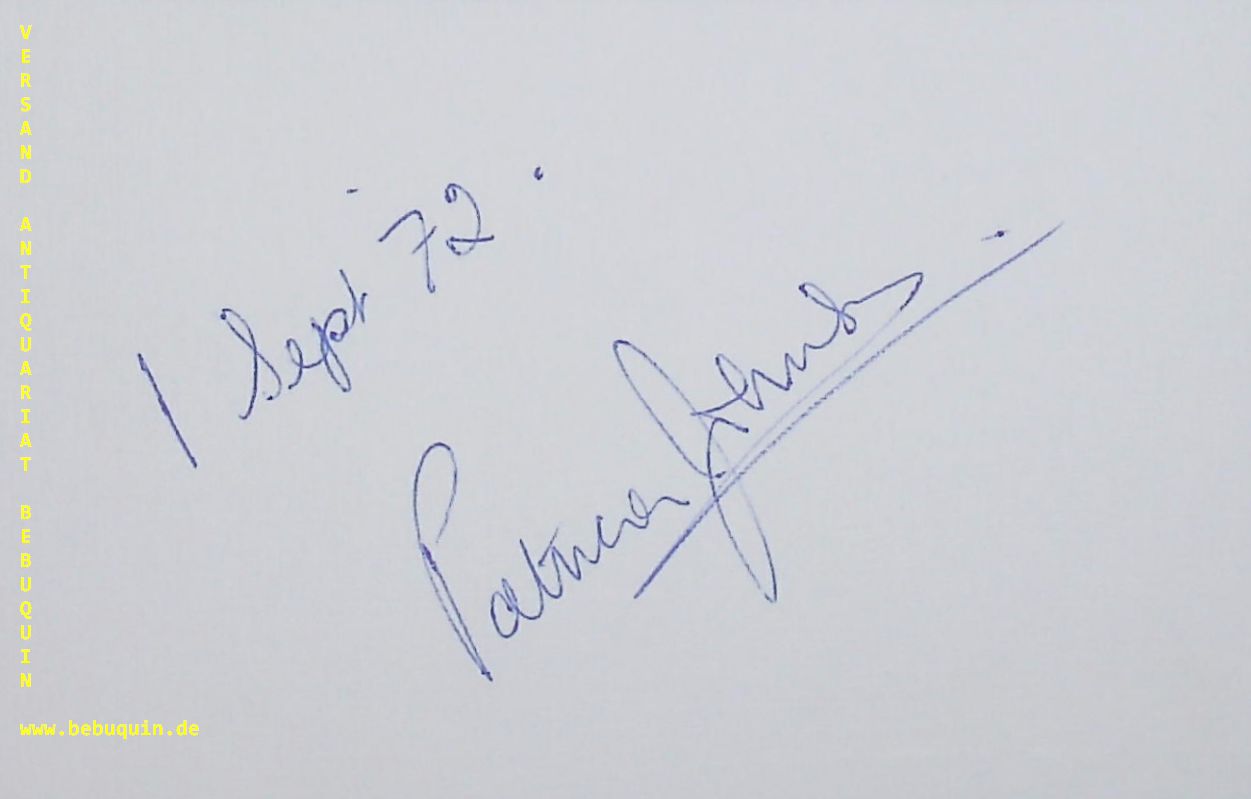 VERSAND ANTIQUARIAT BEBUQUIN
1 Sept 72.
Patricia
www.bebuquin.de